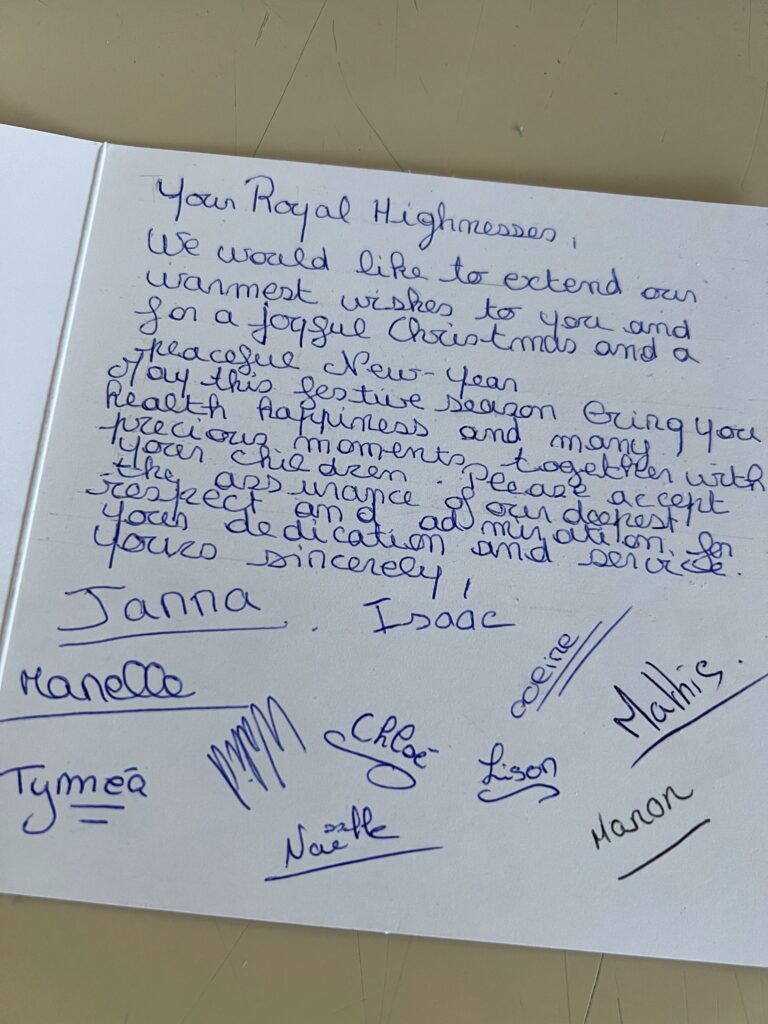 Your Royal Highnesses,
We would like to extend our
warmest wishes to you and
for a joyful Christmas and a
peaceful New-Year
May this festive season bring you
health happiness and many
precious moments together with
your children. Please accept
the assurance of our deepest
respect and admiration for
your dedication and service.
Yours sincerely,
Janna. Isaac
Manelle
Mathis.
Chloé
Lison
Tyméa
Manon
Naëlle